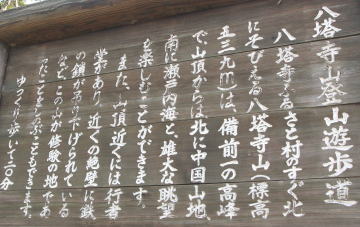 八塔寺山登山遊歩道
八塔寺ふるさと村のすぐ北
にそびえる八塔寺山(標高
五三九m)は、備前一の高峰
で山頂からは北に中国山地、
南に瀬戸内海と、雄大な眺望
を楽しむことができます。
また、山頂近くには行者
堂があり、近くの絶壁に鉄
の鎖がつり下げられている
など、この山が修験の地であ
ったことをしのぶこともできます。
ゆっくり歩いて二〇分